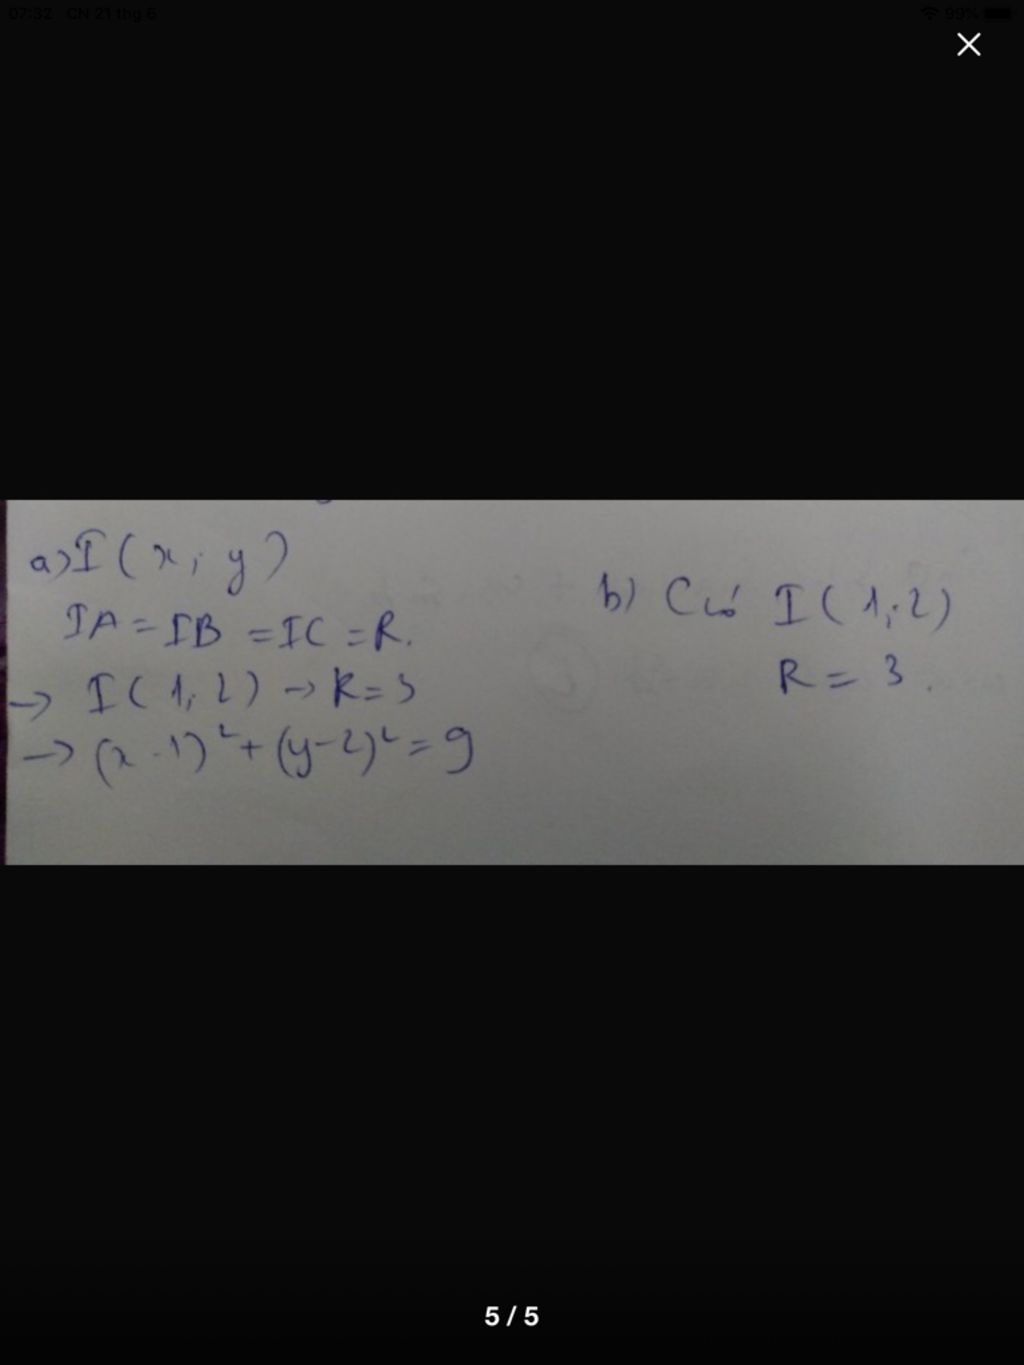 07:32 CN 21 thg 6
99%
a) I(x; y)
IA = IB = IC = R.
→ I(1; 2) → R = 3
→ (x - 1)² + (y - 2)² = 9
b) C có I(1; 2)
R = 3.
5 / 5